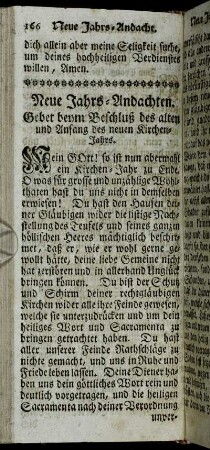 166 Neue Jahrs-Andacht.
dich allein aber meine Seligkeit suche,
um deines hochheiligen Verdienstes
willen, Amen.
Neue Jahrs-Andachten.
Gebet beym Beschluß des alten
und Anfang des neuen Kirchen-
Jahrs.
Mein GOtt! so ist nun abermahl
ein Kirchen-Jahr zu Ende.
O was für grosse und unzählige Wohl-
thaten hast du uns nicht in demselben
erwiesen! Du hast den Haufen dei-
ner Gläubigen wider die listige Nach-
stellung des Teufels und seines ganzen
höllischen Heeres mächtiglich beschir-
met, daß er, wie er wohl gerne ge-
wollt hätte, deine liebe Gemeine nicht
hat zerstören und in allerhand Unglück
bringen können. Du bist der Schutz
und Schirm deiner rechtgläubigen
Kirchen wider alle ihre Feinde gewesen,
welche sie unterzudrücken und um dein
heiliges Wort und Sacramenta zu
bringen getrachtet haben. Du hast
aller unserer Feinde Rathschläge zu
nichte gemacht, und uns in Ruhe und
Friede leben lassen. Deine Diener ha-
ben uns dein göttliches Wort rein und
deutlich vorgetragen, und die heiligen
Sacramenta nach deiner Verordnung
unver-